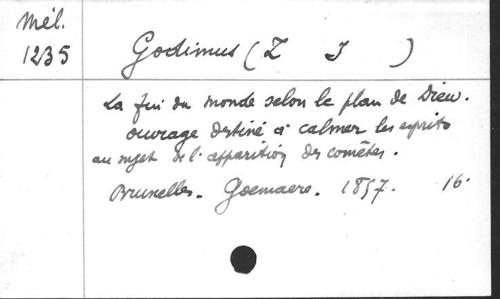 Mél.
1235
Godimus (Z J )
La fin du monde selon le plan de Dieu.
ouvrage destiné à calmer les esprits
au sujet de l'apparition des comètes.
Bruxelles. Goemaere. 1857. 16.